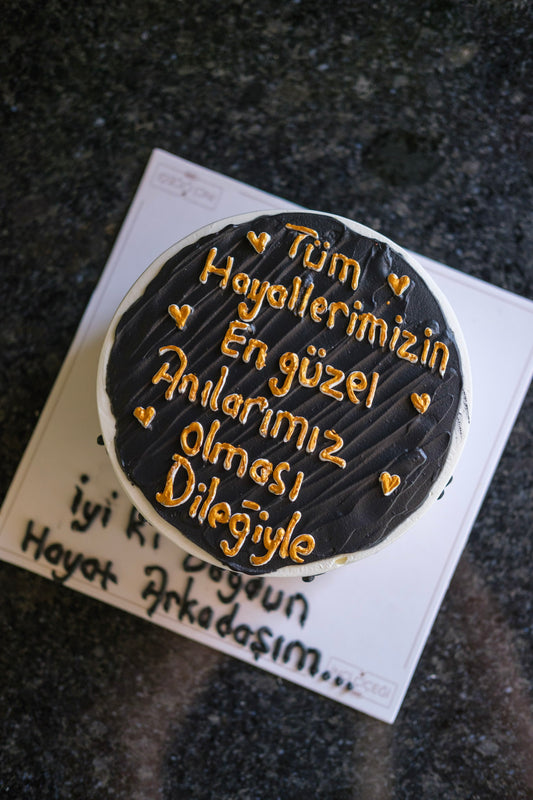 Tüm
Hayallerimizin
En güzel
Anılarımız
olması
Dileğiyle
iyi ki Doğdun
Hayat Arkadaşım...